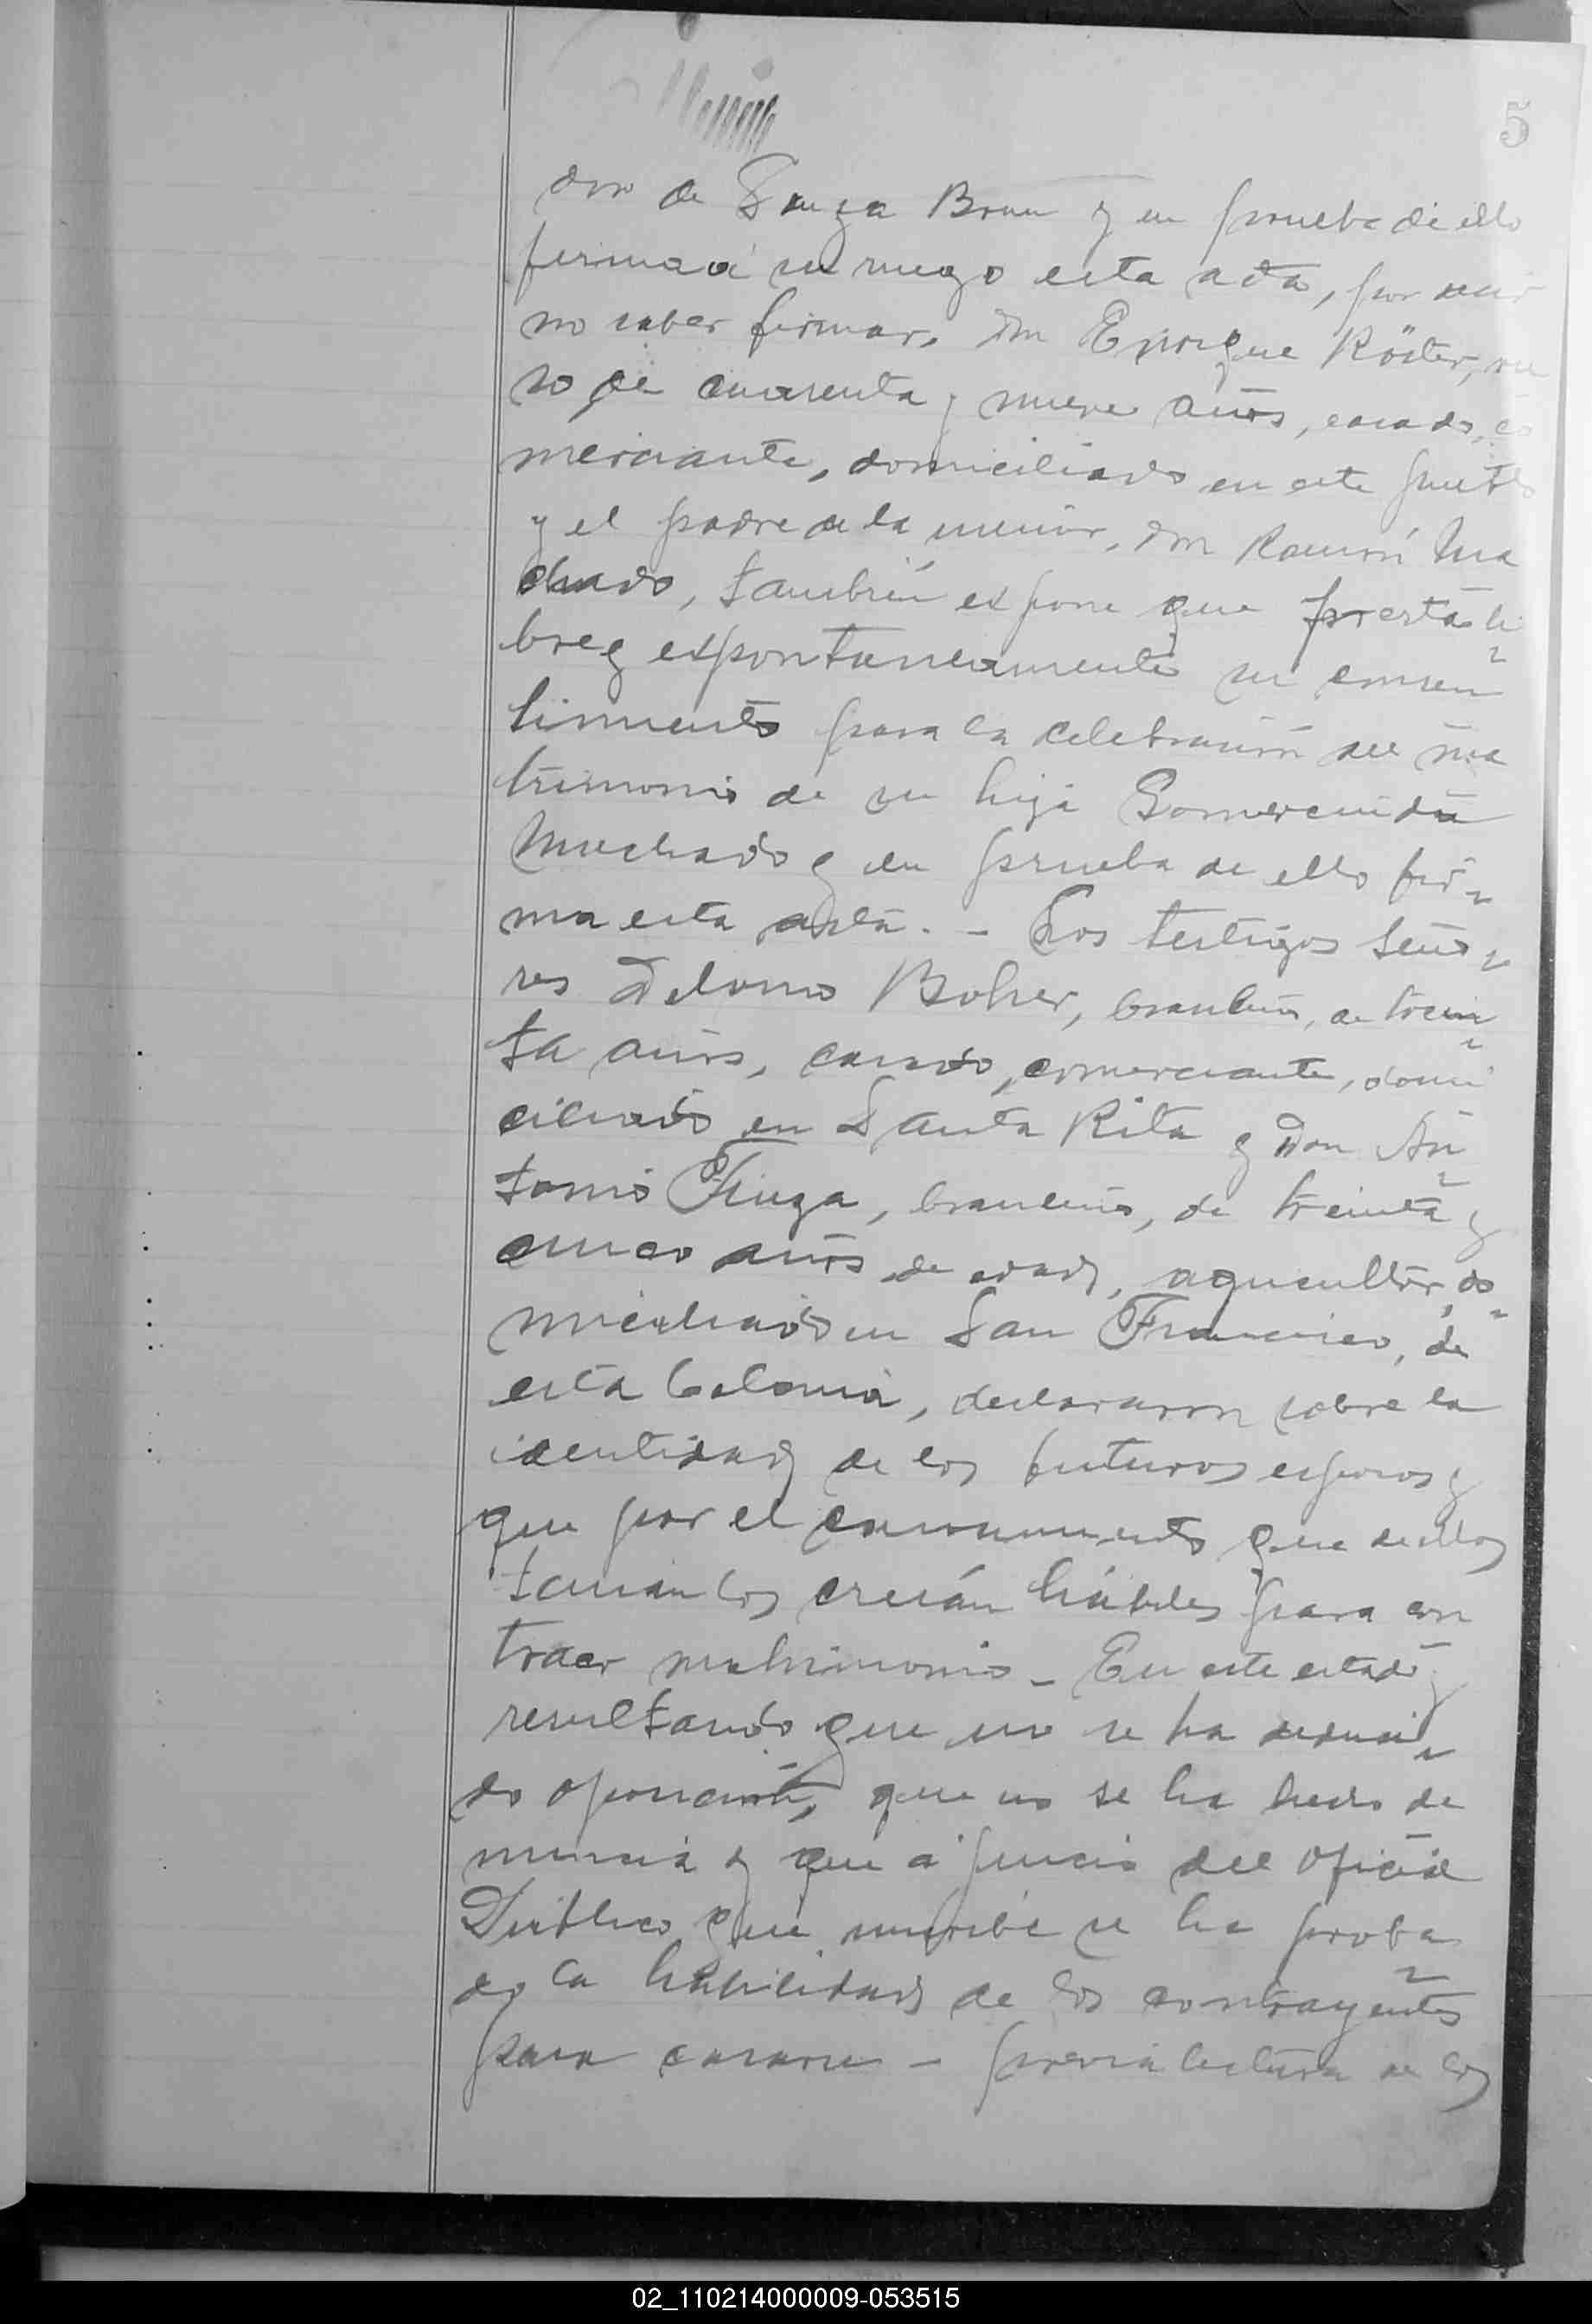 5
don de Souza Brum y en prueba de ello
firma á su ruego esta acta, por decir
no saber firmar, don Enrique Köster, ru
so, de cuarenta y nueve años, casado, co
merciante, domiciliado en este pueblo
y el padre de la menor, don Ramón Ma
chado, también expone que presta li
bre y espontaneamente su consen
timiento para la celebración del ma
trimonio de su hija Gomercinda
Machado y en prueba de ello fir-
ma esta acta. - Los testigos Seño-
res Boher, brasileño, de trein
ta años, casado, comerciante, domi
ciliado en Santa Rita y Don An
tonio Fiuza, brasileño, de treinta y
cinco años de edad, agricultor, do-
miciliado en San Francisco, de
esta Colonia, declararon sobre la
identidad de los futuros esposos y
que por el conocimiento que de ellos
tenian los creían hábiles para con
traer matrimonio - En este estado y
resultando que no se ha deduci-
do oposición, que no se ha hecho de
nuncia y que á juicio del oficial
Público que suscribe se ha proba
do la habilidad de los contrayentes
para casarse - previa lectura de los
02_110214000009-053515